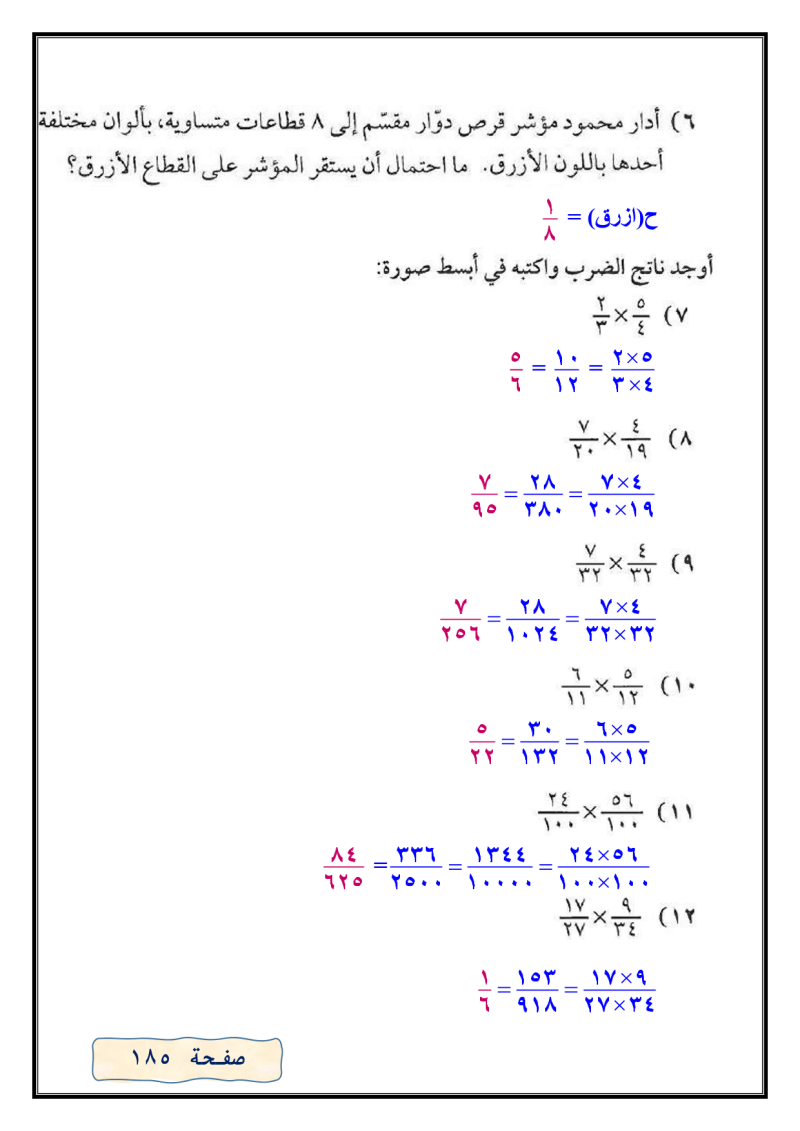 ٦) أدار محمود مؤشر قرص دوّار مقسّم إلى ٨ قطاعات متساوية، بألوان مختلفة
أحدها باللون الأزرق. ما احتمال أن يستقر المؤشر على القطاع الأزرق؟
ح(ازرق) = ١/٨
أوجد ناتج الضرب واكتبه في أبسط صورة:
٧) ٥/٤ × ٢/٣
٥×٢/٤×٣ = ١٠/١٢ = ٥/٦
٨) ٤/١٩ × ٧/٢٠
٤×٧/١٩×٢٠ = ٢٨/٣٨٠ = ٧/٩٥
٩) ٤/٣٢ × ٧/٣٢
٤×٧/٣٢×٣٢ = ٢٨/١٠٢٤ = ٧/٢٥٦
١٠) ٥/١٢ × ٦/١١
٥×٦/١٢×١١ = ٣٠/١٣٢ = ٥/٢٢
١١) ٥٦/١٠٠ × ٢٤/١٠٠
٥٦×٢٤/١٠٠×١٠٠ = ١٣٤٤/١٠٠٠٠ = ٣٣٦/٢٥٠٠ = ٨٤/٦٢٥
١٢) ٩/٣٤ × ١٧/٢٧
٩×١٧/٣٤×٢٧ = ١٥٣/٩١٨ = ١/٦
صفحة ١٨٥